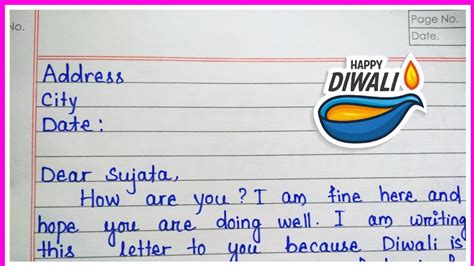 No.
Page No.
Date.
HAPPY
DIWALI
Address
City
Date:
Dear Sujata,
How are you? I am fine here and
hope you are doing well. I am writing
this letter to you because Diwali is